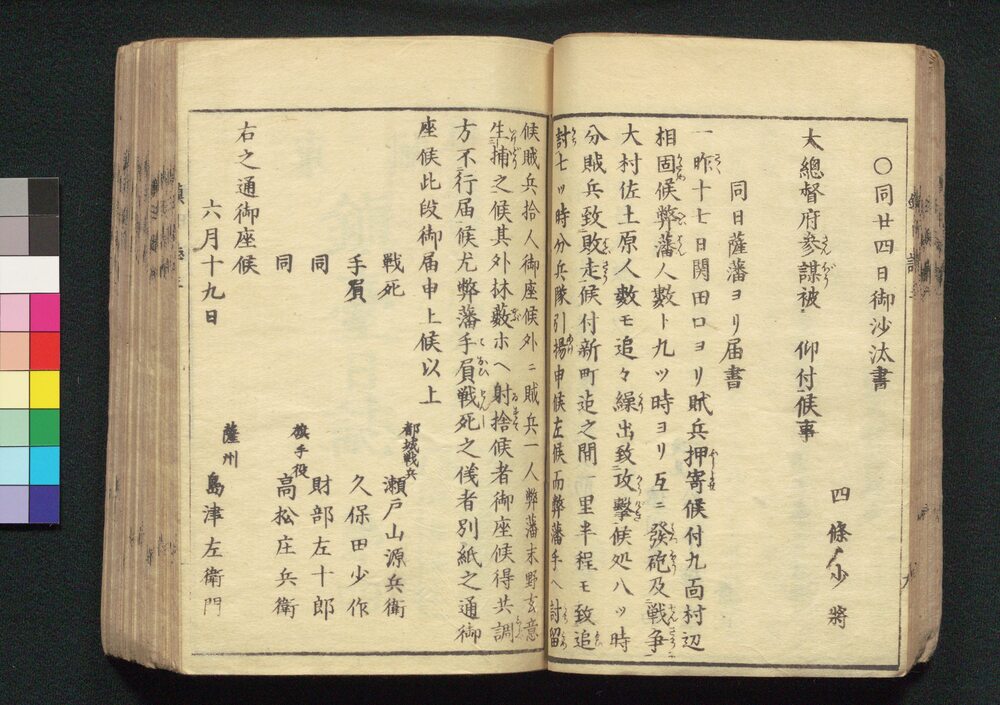 〇同廿四日御沙汰書
四條少將
大總督府參謀被　仰付候事
同日薩藩ヨリ届書
一昨十七日関田口ヨリ賊兵押寄候付九面村辺
相固候弊藩人數ト九ツ時ヨリ互ニ發砲及戦争
大村佐土原人數モ追々繰出致攻擊候処八ツ時
分賊兵致敗走候付新町迠之間一里半程モ致追
討七ツ時分兵隊引揚申候左候而弊藩手ヘ討留
候賊兵拾人御座候外ニ賊兵一人弊藩末野玄意
生捕之候其外林藪ホヘ射捨候者御座候得共調
方不行届候尤弊藩手屓戦死之儀者別紙之通御
座候此段御届申上候以上
戦死
都城戦兵
瀬戸山源兵衛
手屓
久保田少作
同
財部左十郎
同
旗手役
高松庄兵衛
右之通御座候
六月十九日
薩州
島津左衛門